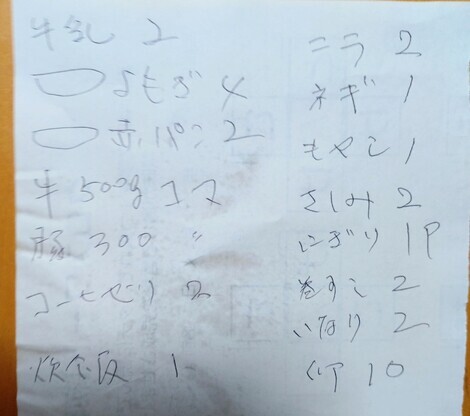 牛乳 2
よもぎ 4
パン 2
牛 500g コマ
豚 300 〃
コーヒゼリ 2
炊飯 1
ニラ 2
ネギ 1
もやし 1
さしみ 2
にぎり 1P
巻すし 2
いなり 2
10